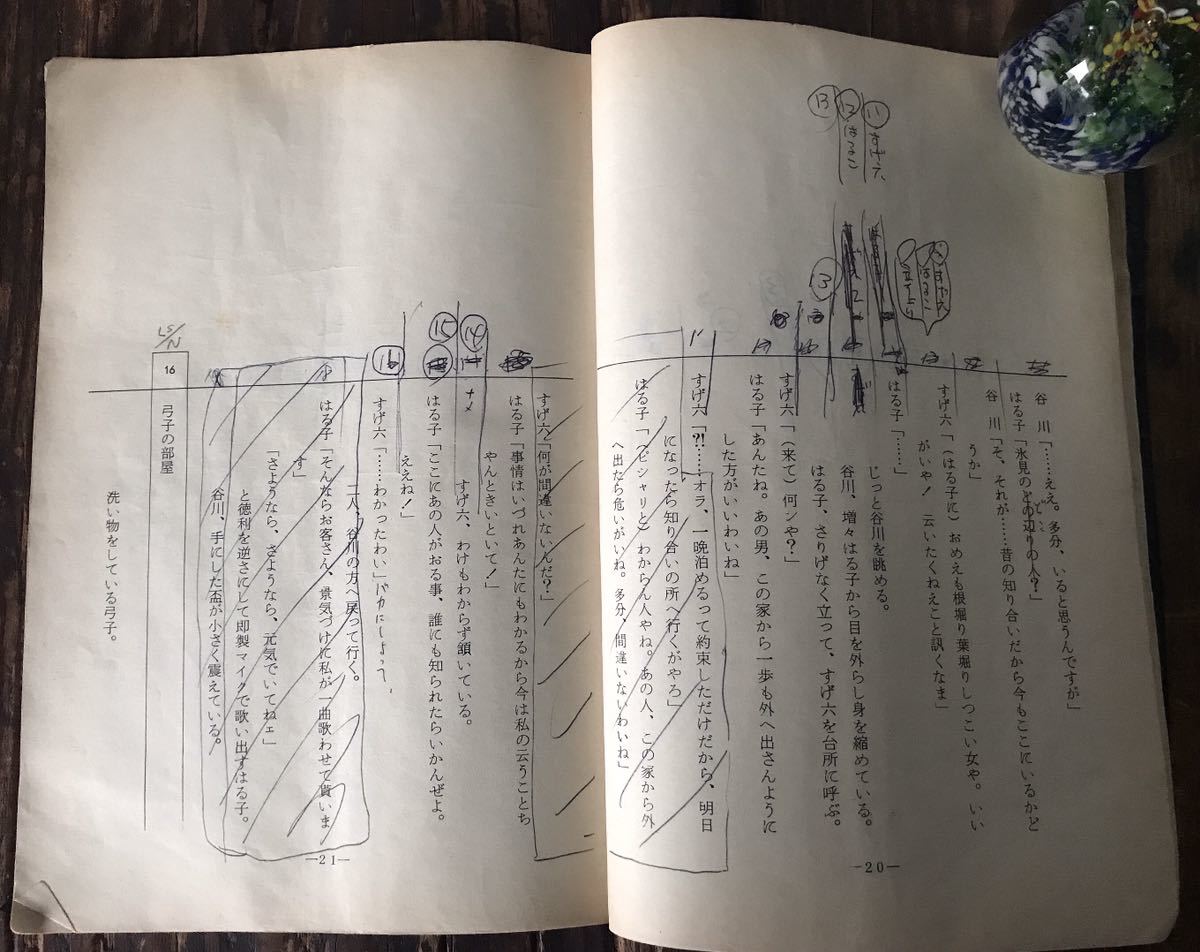 ⑪ すげ六
⑫ はる子
⑬
すげ六
はる子
立ち上り
⑬
谷　川「……ええ。多分、いると思うんですが」
はる子「氷見のどの辺りの人？」
谷　川「そ、それが……昔の知り合いだから今もここにいるかと
うか」
すげ六「（はる子に）おめえも根堀り葉堀りしつこい女や。いい
がいや！　云いたくねえこと訊くなま」
はる子「……」
じっと谷川を眺める。
谷川、増々はる子から目を外らし身を縮めている。
はる子、さりげなく立って、すげ六を台所に呼ぶ。
すげ六「（来て）何シや？」
はる子「あんたね。あの男、この家から一歩も外へ出さんように
した方がいいわいね」
すげ六「⁈……オラ、一晩泊めるって約束しただけだから、明日
になったら知り合いの所へ行くがやろ」
はる子「（ピシャリと）わからん人やね。あの人、この家から外
へ出たら危いがいね。多分、間違いないわいね」
—20—
すげ六「何が間違いないんだ？」
はる子「事情はいづれあんたにもわかるから今は私の云うことち
ゃんときいといて！」
すげ六、わけもわからず頷いている。
⑭
ナメ
はる子「ここにあの人がおる事、誰にも知られたらいかんぜよ。
ええね！」
⑮
すげ六「……わかったわい」バカにしよって、
⑯
二人、谷川の方へ戻って行く。
はる子「そんならお客さん、景気づけに私が一曲歌わせて貰いま
す」
「さようなら、さようなら、元気でいてねェ」
と徳利を逆さにして即製マイクで歌い出すはる子。
谷川、手にした盃が小さく震えている。
LS/N
16　弓子の部屋
洗い物をしている弓子。
—21—